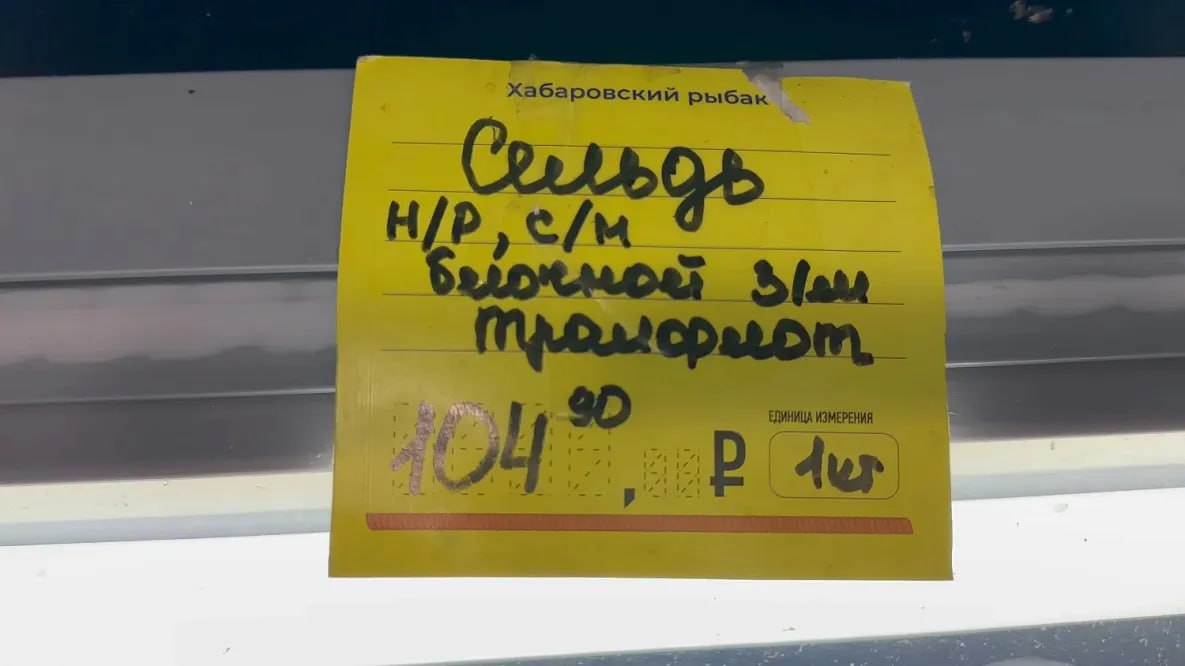 Хабаровский рыбак
Сельдь
н/р, с/м
блочной з/м
трансфлот
104 90
, ₽
ЕДИНИЦА ИЗМЕРЕНИЯ
1 кг